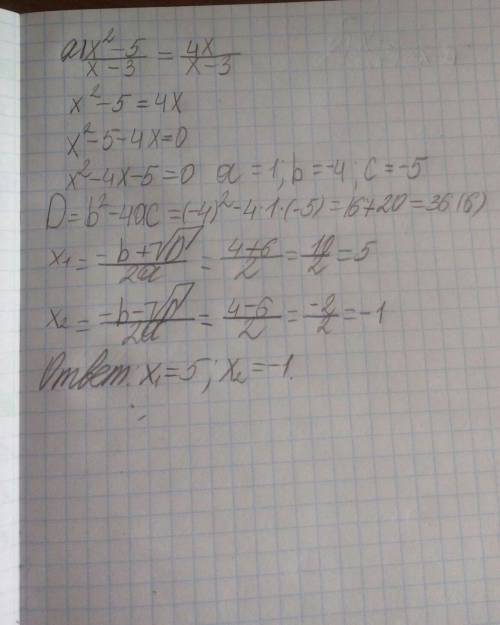 а) x²-5/x-3 = 4x/x-3
x²-5=4x
x²-5-4x=0
x²-4x-5=0 a=1; b=-4; c=-5
D=b²-4ac=(-4)²-4·1·(-5)=16+20=36(6)
x₁=-b+√D/2a=4+6/2=10/2=5
x₂=-b-√D/2a=4-6/2=-2/2=-1
Ответ: x₁=5; x₂=-1.